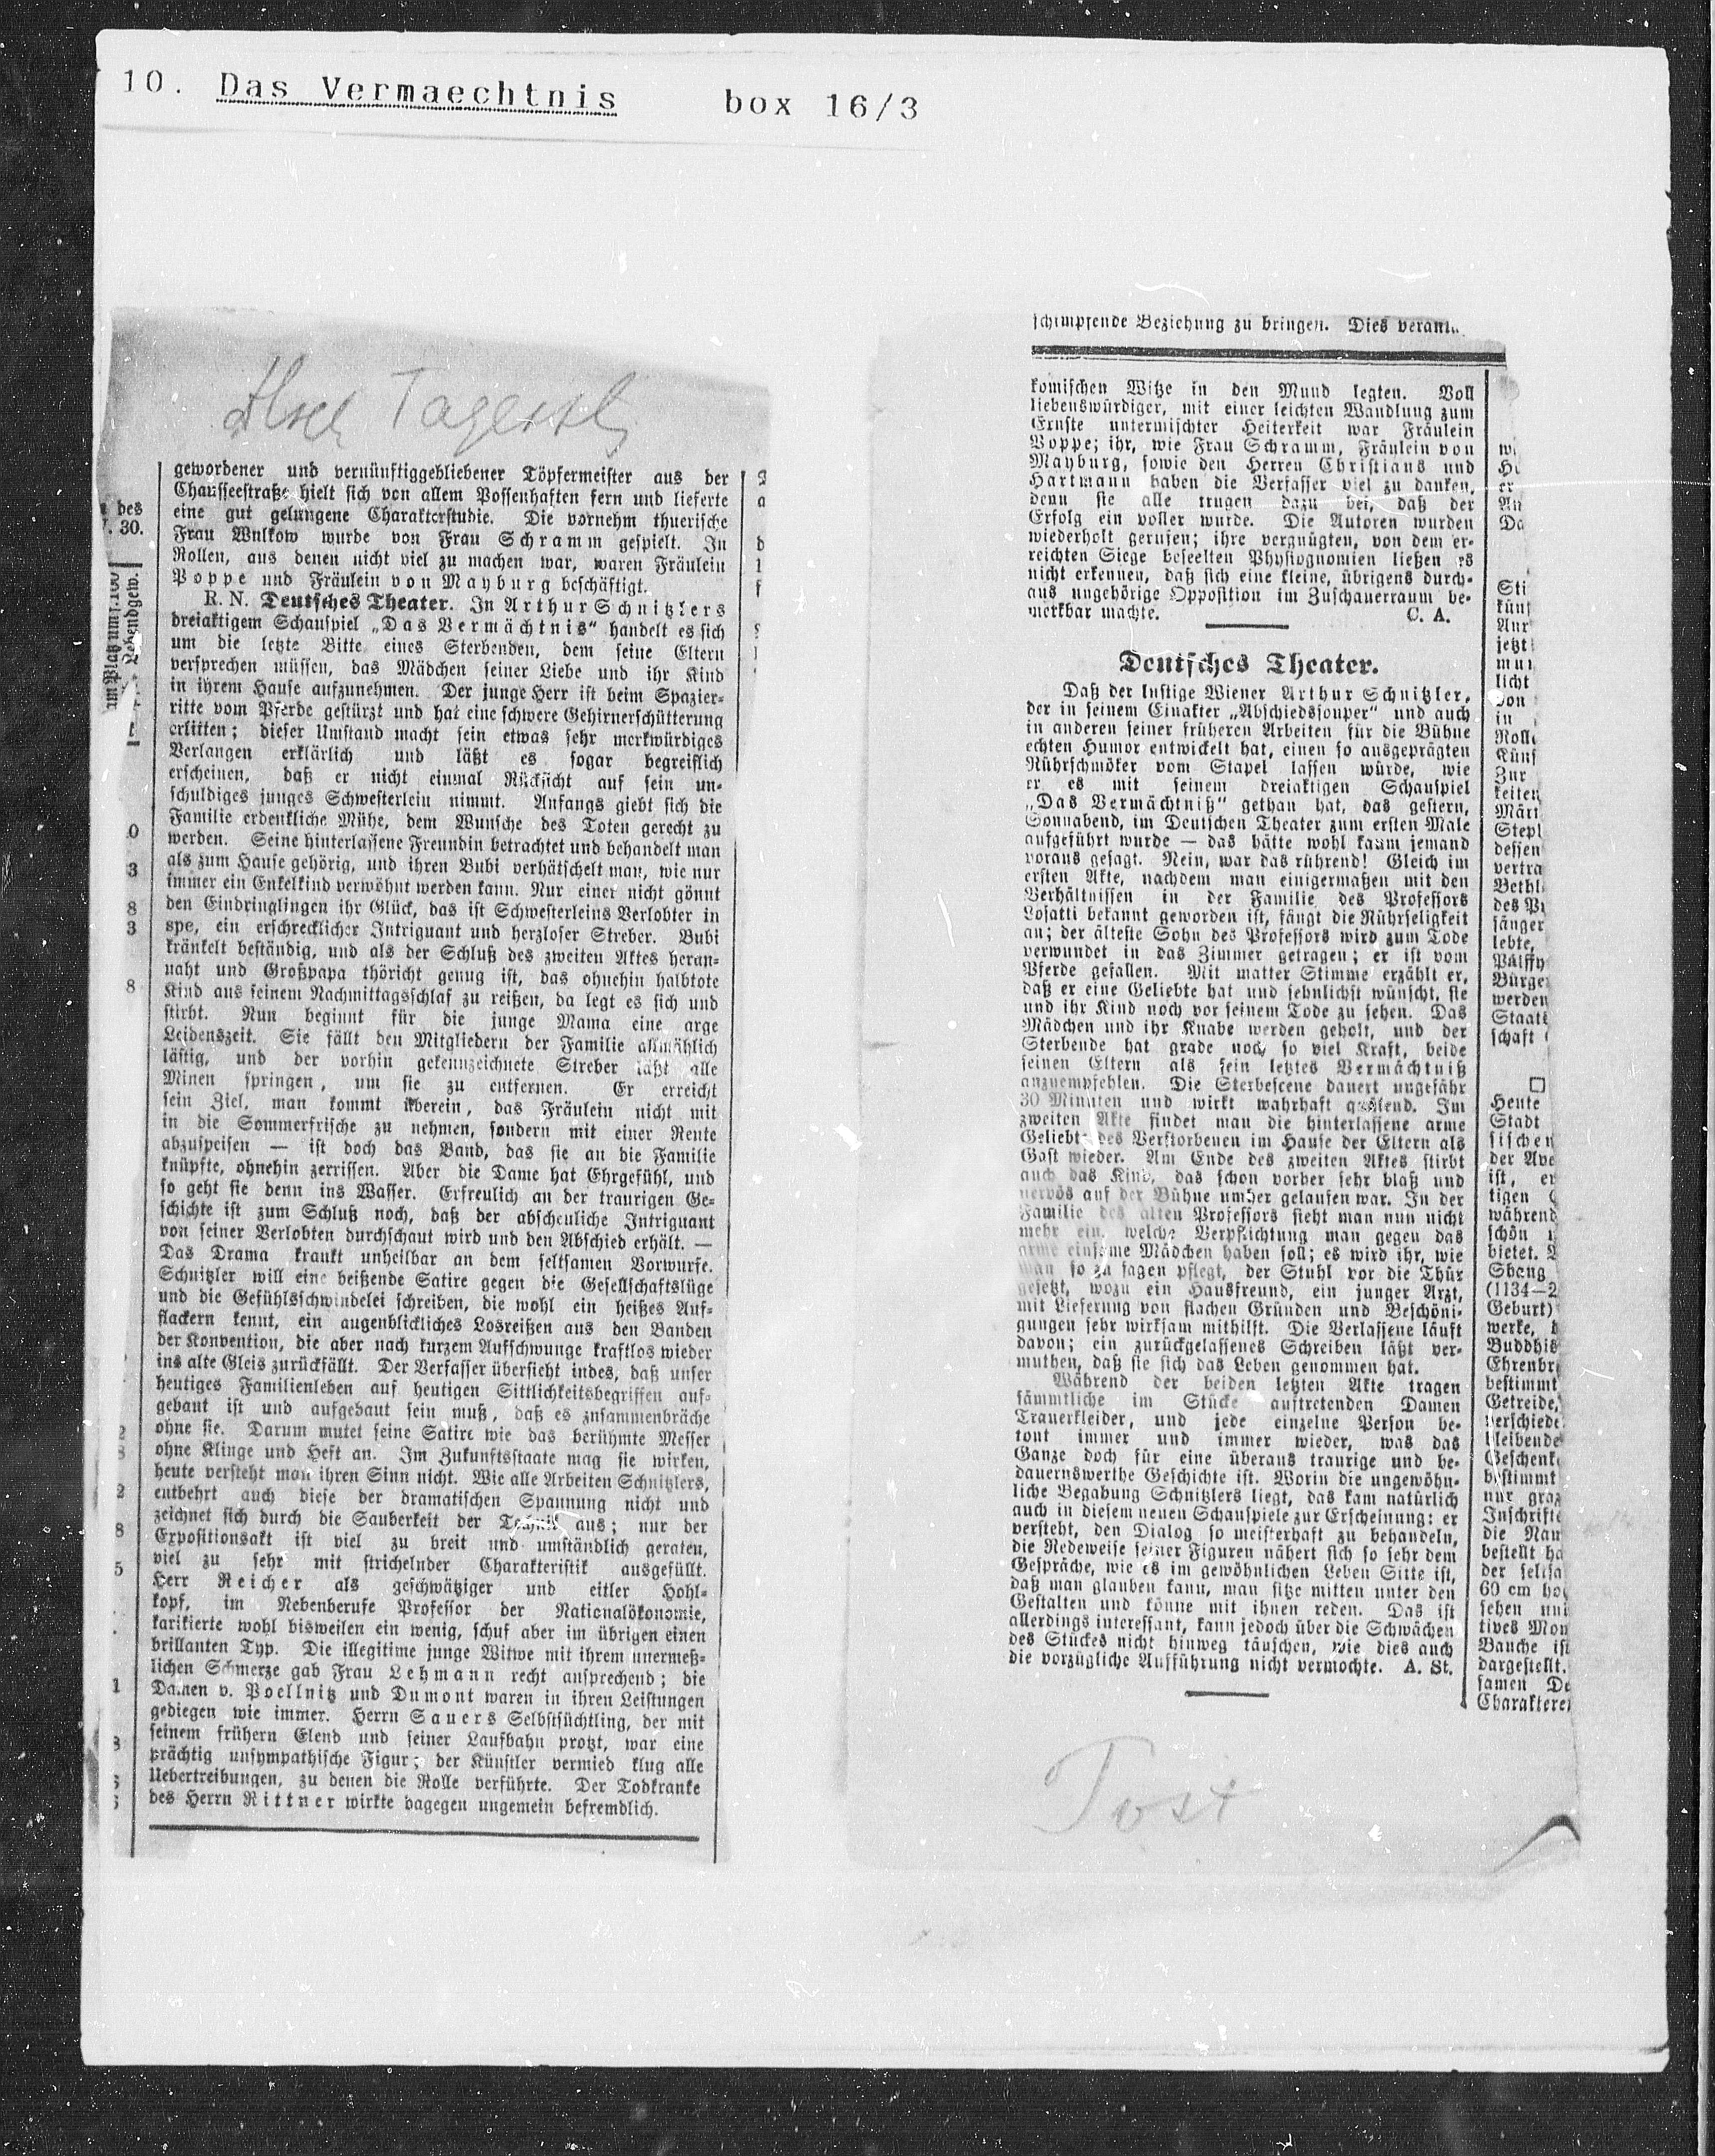 10. Das Vermaechtnis box 16/3
gewordener und vernünftiggebliebener Töpfermeister aus der
Chausseestraße hielt sich von allem Possenhaften fern und lieferte
eine gut gelungene Charakterstudie. Die vornehm thuerische
Frau Wulkow wurde von Frau Schramm gespielt. In
Rollen, aus denen nicht viel zu machen war, waren Fräulein
Poppe und Fräulein von Mayburg beschäftigt.
R. N. Deutsches Theater. In Arthur Schnitzlers
dreiaktigem Schauspiel „Das Vermächtnis“ handelt es sich
um die letzte Bitte eines Sterbenden, dem seine Eltern
versprechen müssen, das Mädchen seiner Liebe und ihr Kind
in ihrem Hause aufzunehmen. Der junge Herr ist beim Spazier-
ritte vom Pferde gestürzt und hat eine schwere Gehirnerschütterung
erlitten; dieser Umstand macht sein etwas sehr merkwürdiges
Verlangen erklärlich und läßt es sogar begreiflich
erscheinen, daß er nicht einmal Rücksicht auf sein un-
schuldiges junges Schwesterlein nimmt. Anfangs giebt sich die
Familie erdenkliche Mühe, dem Wunsche des Toten gerecht zu
werden. Seine hinterlassene Freundin betrachtet und behandelt man
als zum Hause gehörig, und ihren Bubi verhätschelt man, wie nur
immer ein Enkelkind verwöhnt werden kann. Nur einer nicht gönnt
den Eindringlingen ihr Glück, das ist Schwesterleins Verlobter in
spe, ein erschrecklicher Intriguant und herzloser Streber. Bubi
kränkelt beständig, und als der Schluß des zweiten Aktes heran-
naht und Großpapa thöricht genug ist, das ohnehin halbtote
Kind aus seinem Nachmittagsschlaf zu reißen, da legt es sich und
stirbt. Nun beginnt für die junge Mama eine arge
Leidenszeit. Sie fällt den Mitgliedern der Familie allmählich
lästig, und der vorhin gekennzeichnete Streber läßt alle
Minen springen, um sie zu entfernen. Er erreicht
sein Ziel, man kommt überein, das Fräulein nicht mit
in die Sommerfrische zu nehmen, sondern mit einer Rente
abzuspeisen — ist doch das Band, das sie an die Familie
knüpfte, ohnehin zerrissen. Aber die Dame hat Ehrgefühl, und
so geht sie denn ins Wasser. Erfreulich an der traurigen Ge-
schichte ist zum Schluß noch, daß der abscheuliche Intriguant
von seiner Verlobten durchschaut wird und den Abschied erhält. —
Das Drama krankt unheilbar an dem seltsamen Vorwurfe.
Schnitzler will eine beißende Satire gegen die Gesellschaftslüge
und die Gefühlsschwindelei schreiben, die wohl ein heißes Auf-
flackern kennt, ein augenblickliches Losreißen aus den Banden
der Konvention, die aber nach kurzem Aufschwunge kraftlos wieder
ins alte Gleis zurückfällt. Der Verfasser übersieht indes, daß unser
heutiges Familienleben auf heutigen Sittlichkeitsbegriffen auf-
gebaut ist und aufgebaut sein muß, daß es zusammenbräche
ohne sie. Darum mutet seine Satire wie das berühmte Messer
ohne Klinge und Heft an. Im Zukunftsstaate mag sie wirken,
heute versteht man ihren Sinn nicht. Wie alle Arbeiten Schnitzlers,
entbehrt auch diese der dramatischen Spannung nicht und
zeichnet sich durch die Sauberkeit der Technik aus; nur der
Expositionsakt ist viel zu breit und umständlich geraten,
viel zu sehr mit strichelnder Charakteristik ausgefüllt.
Herr Reicher als geschwätziger und eitler Hohl-
kopf, im Nebenberufe Professor der Nationalökonomie,
karikierte wohl bisweilen ein wenig, schuf aber im übrigen einen
brillanten Typ. Die illegitime junge Witwe mit ihrem unermeß-
lichen Schmerze gab Frau Lehmann recht ansprechend; die
Damen v. Poellnitz und Dumont waren in ihren Leistungen
gediegen wie immer. Herrn Sauers Selbstsüchtling, der mit
seinem frühern Elend und seiner Laufbahn protzt, war eine
prächtig unsympathische Figur; der Künstler vermied klug alle
Uebertreibungen, zu denen die Rolle verführte. Der Todkranke
des Herrn Rittner wirkte dagegen ungemein befremdlich.
schimpfende Beziehung zu bringen. Dies
komischen Witze in den Mund legten. Voll
liebenswürdiger, mit einer leichten Wandlung zum
Ernste untermischter Heiterkeit war Fräulein
Poppe; ihr, wie Frau Schramm, Fräulein von
Mayburg, sowie den Herren Christians und
Hartmann haben die Verfasser viel zu danken,
denn sie alle trugen dazu bei, daß der
Erfolg ein voller wurde. Die Autoren wurden
wiederholt gerufen; ihre vergnügten, von dem er-
reichten Siege beseelten Physiognomien ließen es
nicht erkennen, daß sich eine kleine, übrigens durch-
aus ungehörige Opposition im Zuschauerraum be-
merkbar machte. C. A.
Deutsches Theater.
Daß der lustige Wiener Arthur Schnitzler,
der in seinem Einakter „Abschiedssouper“ und auch
in anderen seiner früheren Arbeiten für die Bühne
echten Humor entwickelt hat, einen so ausgeprägten
Rührschmöker vom Stapel lassen würde, wie
er es mit seinem dreiaktigen Schauspiel
„Das Vermächtniß“ gethan hat, das gestern,
Sonnabend, im Deutschen Theater zum ersten Male
aufgeführt wurde — das hätte wohl kaum jemand
voraus gesagt. Nein, war das rührend! Gleich im
ersten Akte, nachdem man einigermaßen mit den
Verhältnissen in der Familie des Professors
Losatti bekannt geworden ist, fängt die Rührseligkeit
an; der älteste Sohn des Professors wird zum Tode
verwundet in das Zimmer getragen; er ist vom
Pferde gefallen. Mit matter Stimme erzählt er,
daß er eine Geliebte hat und sehnlichst wünscht, sie
und ihr Kind noch vor seinem Tode zu sehen. Das
Mädchen und ihr Knabe werden geholt, und der
Sterbende hat grade noch so viel Kraft, beide
seinen Eltern als sein letztes Vermächtniß
anzuempfehlen. Die Sterbescene dauert ungefähr
30 Minuten und wirkt wahrhaft quälend. Im
zweiten Akte findet man die hinterlassene arme
Geliebte des Verstorbenen im Hause der Eltern als
Gast wieder. Am Ende des zweiten Aktes stirbt
auch das Kind, das schon vorher sehr blaß und
nervös auf der Bühne umher gelaufen war. In der
Familie des alten Professors sieht man nun nicht
mehr ein, welche Verpflichtung man gegen das
arme einsame Mädchen haben soll; es wird ihr, wie
man so zu sagen pflegt, der Stuhl vor die Thür
gesetzt, wozu ein Hausfreund, ein junger Arzt,
mit Lieferung von flachen Gründen und Beschöni-
gungen sehr wirksam mithilft. Die Verlassene läuft
davon; ein zurückgelassenes Schreiben läßt ver-
muthen, daß sie sich das Leben genommen hat.
Während der beiden letzten Akte tragen
sämmtliche im Stücke auftretenden Damen
Trauerkleider, und jede einzelne Person be-
tont immer und immer wieder, was das
Ganze doch für eine überaus traurige und be-
dauernswerthe Geschichte ist. Worin die ungewöhn-
liche Begabung Schnitzlers liegt, das kam natürlich
auch in diesem neuen Schauspiele zur Erscheinung: er
versteht, den Dialog so meisterhaft zu behandeln,
die Redeweise seiner Figuren nähert sich so sehr dem
Gespräche, wie es im gewöhnlichen Leben Sitte ist,
daß man glauben kann, man sitze mitten unter den
Gestalten und könne mit ihnen reden. Das ist
allerdings interessant, kann jedoch über die Schwächen
des Stückes nicht hinweg täuschen, wie dies auch
die vorzügliche Aufführung nicht vermochte. A. St.
Post